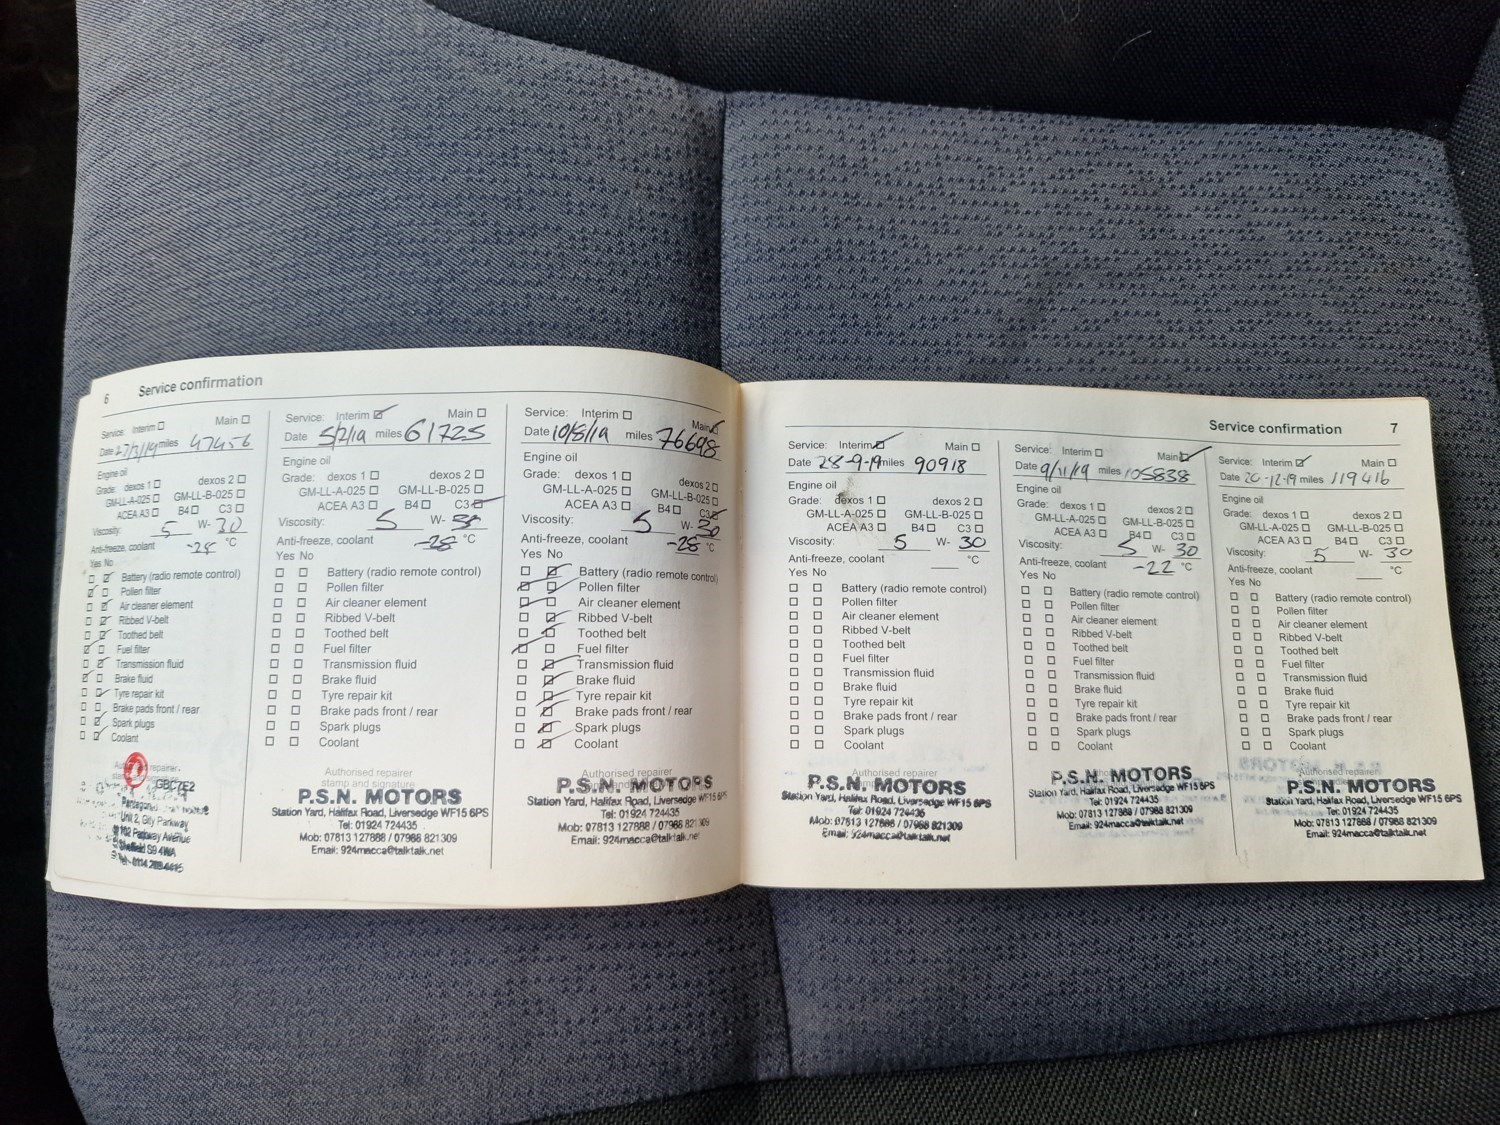 6 Service confirmation
Service: Interim ☐ Main ☐
miles 47456
Engine oil
Grade: dexos 1 ☐ dexos 2 ☐
GM-LL-A-025 ☐ GM-LL-B-025 ☐
ACEA A3 ☐ B4 ☐ C3 ☐
Viscosity: 5 W- 30
Anti-freeze, coolant -28 °C
Yes No
Battery (radio remote control)
Pollen filter
Air cleaner element
Ribbed V-belt
Toothed belt
Fuel filter
Transmission fluid
Brake fluid
Tyre repair kit
Brake pads front / rear
Spark plugs
Coolant
GBC7E2
Pentagon
Unit 2, City Parkway
Parkway Avenue
Sheffield S9 4WA
Service: Interim ☑ Main ☐
Date 5/2/19 miles 61725
Engine oil
Grade: dexos 1 ☐ dexos 2 ☐
GM-LL-A-025 ☐ GM-LL-B-025 ☐
ACEA A3 ☐ B4 ☐ C3 ☑
Viscosity: 5 W- 30
Anti-freeze, coolant -28 °C
Yes No
Battery (radio remote control)
Pollen filter
Air cleaner element
Ribbed V-belt
Toothed belt
Fuel filter
Transmission fluid
Brake fluid
Tyre repair kit
Brake pads front / rear
Spark plugs
Coolant
Authorised repairer
stamp and signature
P.S.N. MOTORS
Station Yard, Halifax Road, Liversedge WF15 6PS
Tel: 01924 724435
Mob: 07813 127888 / 07988 821309
Email: 924macca@talktalk.net
Service: Interim ☐ Main ☑
Date 10/8/19 miles 76698
Engine oil
Grade: dexos 1 ☐ dexos 2 ☐
GM-LL-A-025 ☐ GM-LL-B-025 ☐
ACEA A3 ☐ B4 ☐ C3 ☑
Viscosity: 5 W- 30
Anti-freeze, coolant -28 °C
Yes No
Battery (radio remote control)
Pollen filter
Air cleaner element
Ribbed V-belt
Toothed belt
Fuel filter
Transmission fluid
Brake fluid
Tyre repair kit
Brake pads front / rear
Spark plugs
Coolant
Authorised repairer
P.S.N. MOTORS
Station Yard, Halifax Road, Liversedge WF15 6PS
Tel: 01924 724435
Mob: 07813 127888 / 07988 821309
Email: 924macca@talktalk.net
Service confirmation 7
Service: Interim ☑ Main ☐
Date 28-9-19 miles 90918
Engine oil
Grade: dexos 1 ☐ dexos 2 ☐
GM-LL-A-025 ☐ GM-LL-B-025 ☐
ACEA A3 ☐ B4 ☐ C3 ☐
Viscosity: 5 W- 30
Anti-freeze, coolant °C
Yes No
Battery (radio remote control)
Pollen filter
Air cleaner element
Ribbed V-belt
Toothed belt
Fuel filter
Transmission fluid
Brake fluid
Tyre repair kit
Brake pads front / rear
Spark plugs
Coolant
Authorised repairer
P.S.N. MOTORS
Station Yard, Halifax Road, Liversedge WF15 6PS
Tel: 01924 724435
Mob: 07813 127888 / 07988 821309
Email: 924macca@talktalk.net
Service: Interim ☐ Main ☑
Date 9/11/19 miles 105838
Engine oil
Grade: dexos 1 ☐ dexos 2 ☐
GM-LL-A-025 ☐ GM-LL-B-025 ☐
ACEA A3 ☐ B4 ☐ C3 ☐
Viscosity: 5 W- 30
Anti-freeze, coolant -22 °C
Yes No
Battery (radio remote control)
Pollen filter
Air cleaner element
Ribbed V-belt
Toothed belt
Fuel filter
Transmission fluid
Brake fluid
Tyre repair kit
Brake pads front / rear
Spark plugs
Coolant
P.S.N. MOTORS
Station Yard, Halifax Road, Liversedge WF15 6PS
Tel: 01924 724435
Mob: 07813 127888 / 07988 821309
Email: 924macca@talktalk.net
Service: Interim ☑ Main ☐
Date 20-12-19 miles 119416
Engine oil
Grade: dexos 1 ☐ dexos 2 ☐
GM-LL-A-025 ☐ GM-LL-B-025 ☐
ACEA A3 ☐ B4 ☐ C3 ☐
Viscosity: 5 W- 30
Anti-freeze, coolant °C
Yes No
Battery (radio remote control)
Pollen filter
Air cleaner element
Ribbed V-belt
Toothed belt
Fuel filter
Transmission fluid
Brake fluid
Tyre repair kit
Brake pads front / rear
Spark plugs
Coolant
Authorised repairer
P.S.N. MOTORS
Station Yard, Halifax Road, Liversedge WF15 6PS
Tel: 01924 724435
Mob: 07813 127888 / 07988 821309
Email: 924macca@talktalk.net